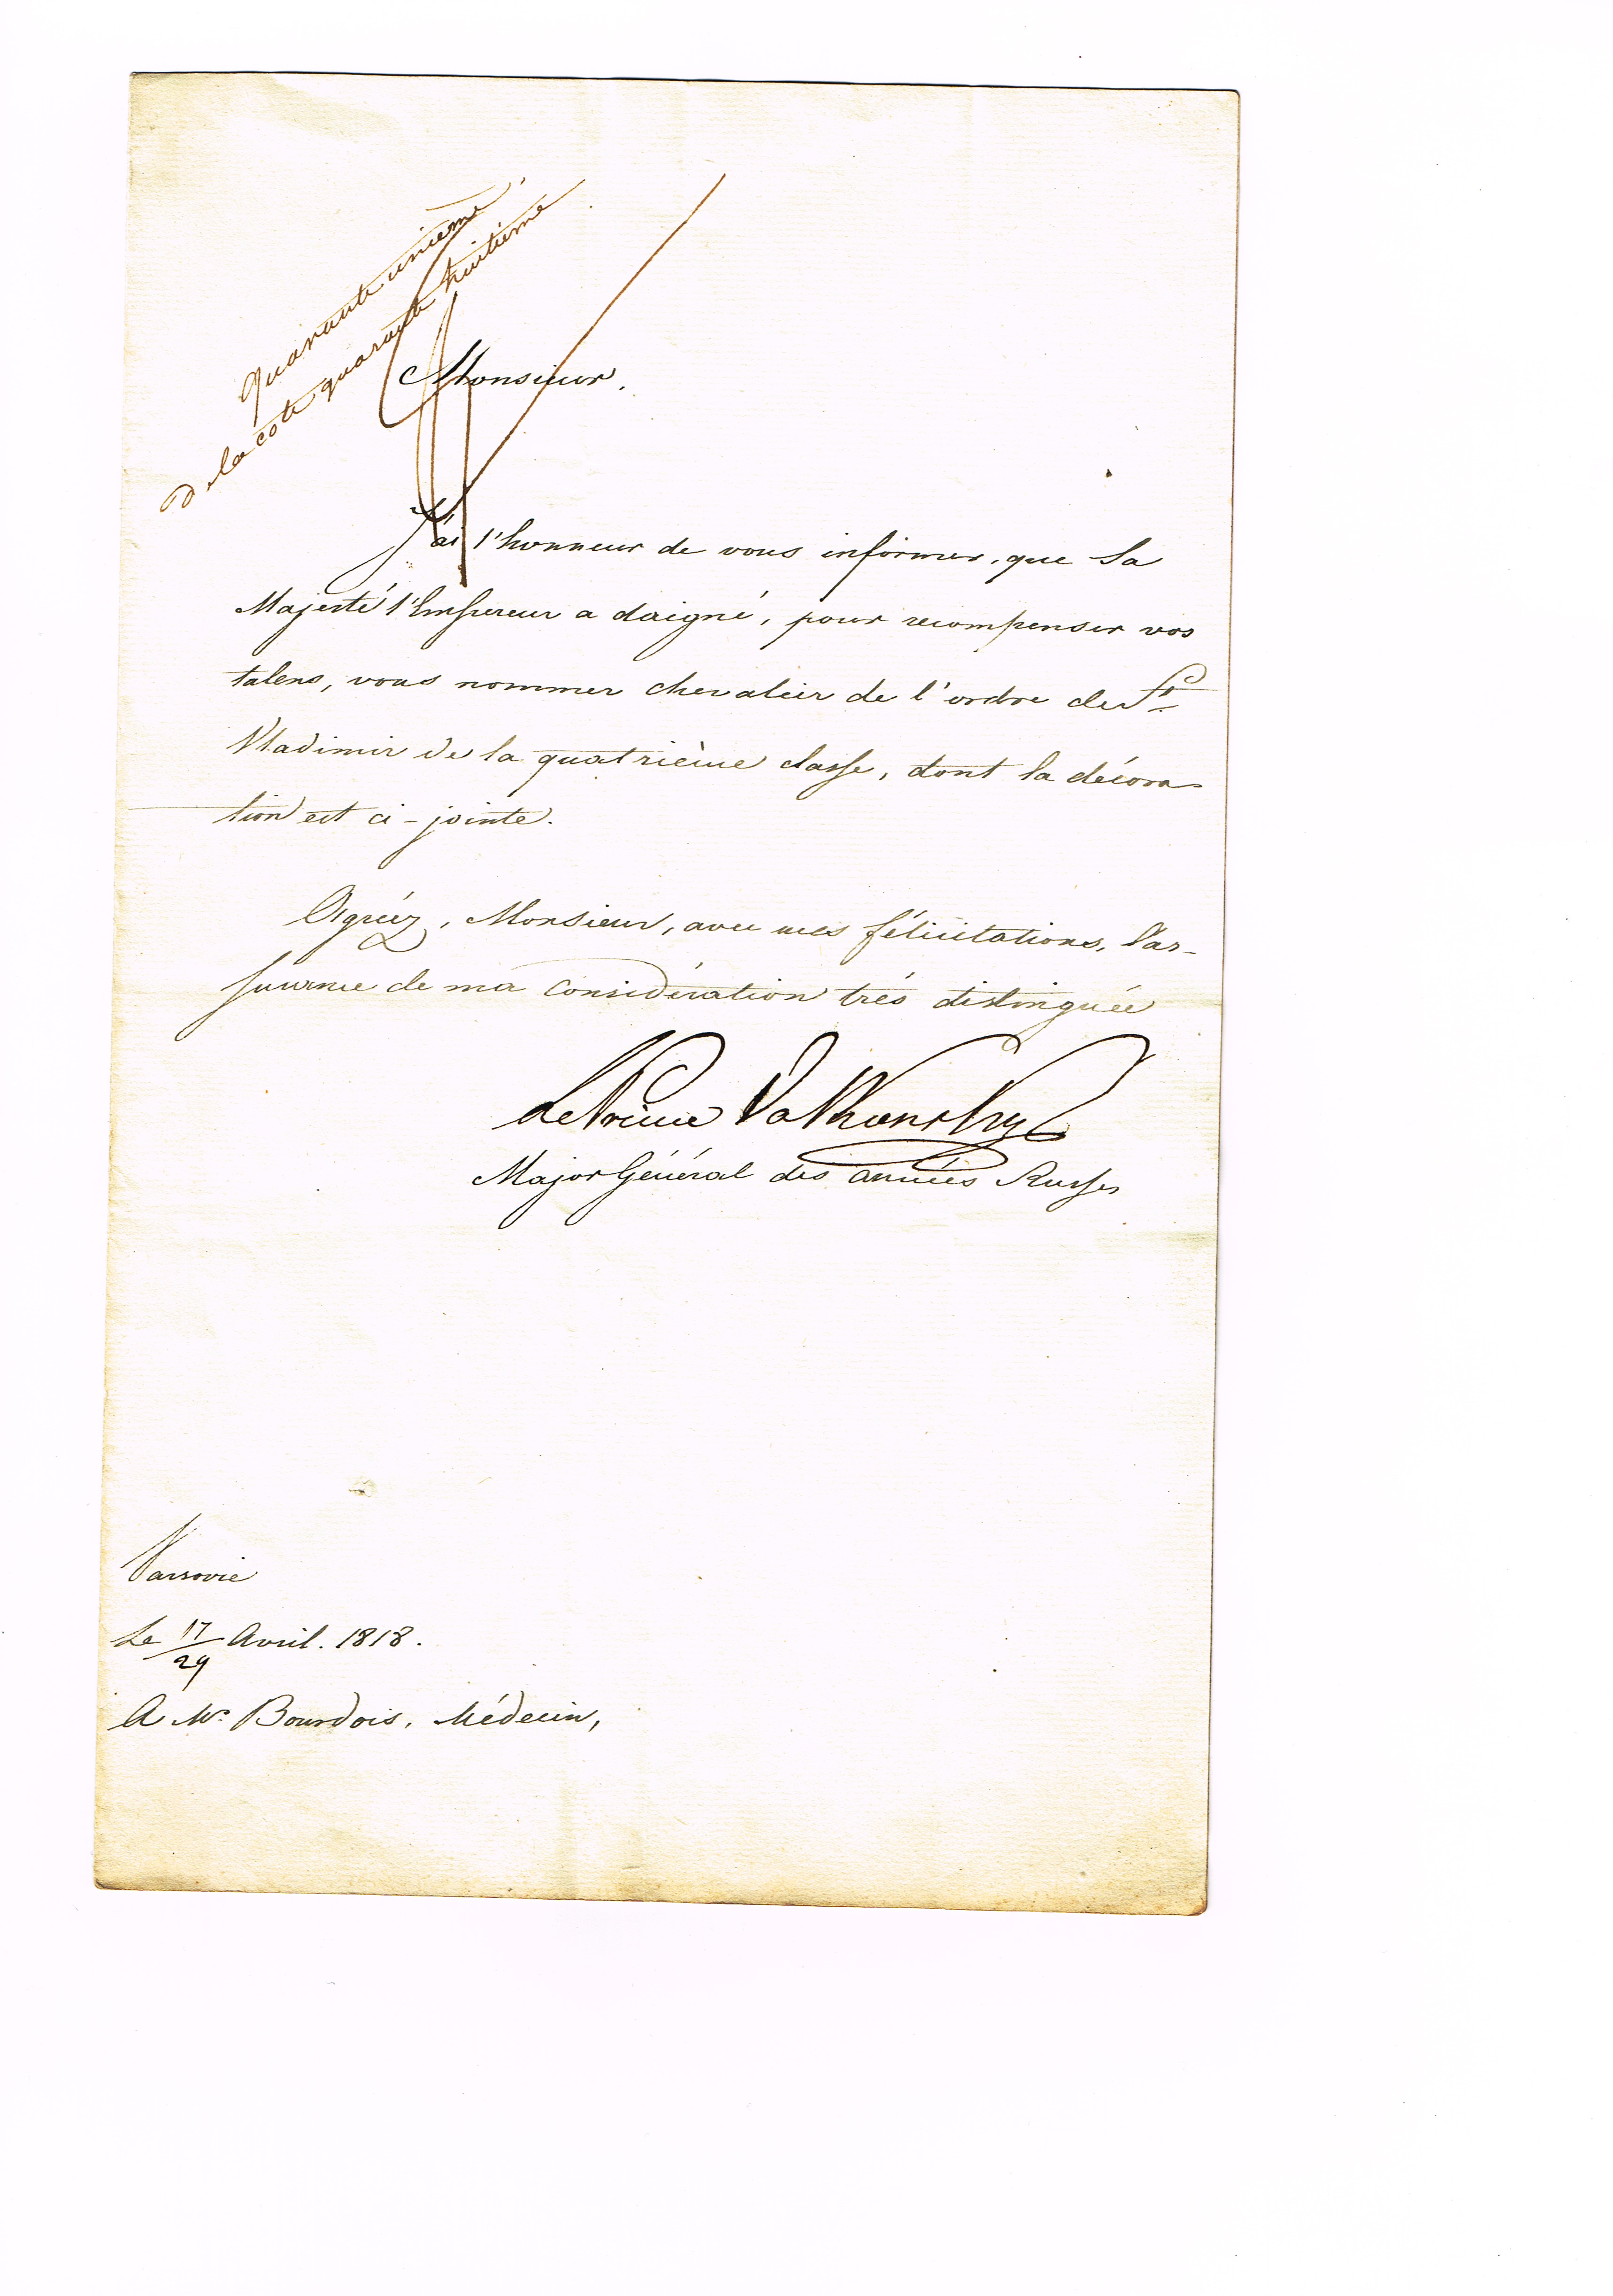 Quarante unieme
De la cote quarante huitieme
Monsieur.
J'ai l'honneur de vous informer, que Sa
Majesté l'Empereur a daigné, pour recompenser vos
talens, vous nommer chevalier de l'ordre de St
Vladimir de la quatrième classe, dont la décora-
tion est ci-jointe.
Agréez, Monsieur, avec mes félicitations, l'as-
surance de ma considération trés distinguée
Le Prince Volkhonsky
Major Général des armées Russes
Varsovie
Le 17/29 Avril. 1818.
A Mr. Bourdois, Médecin,